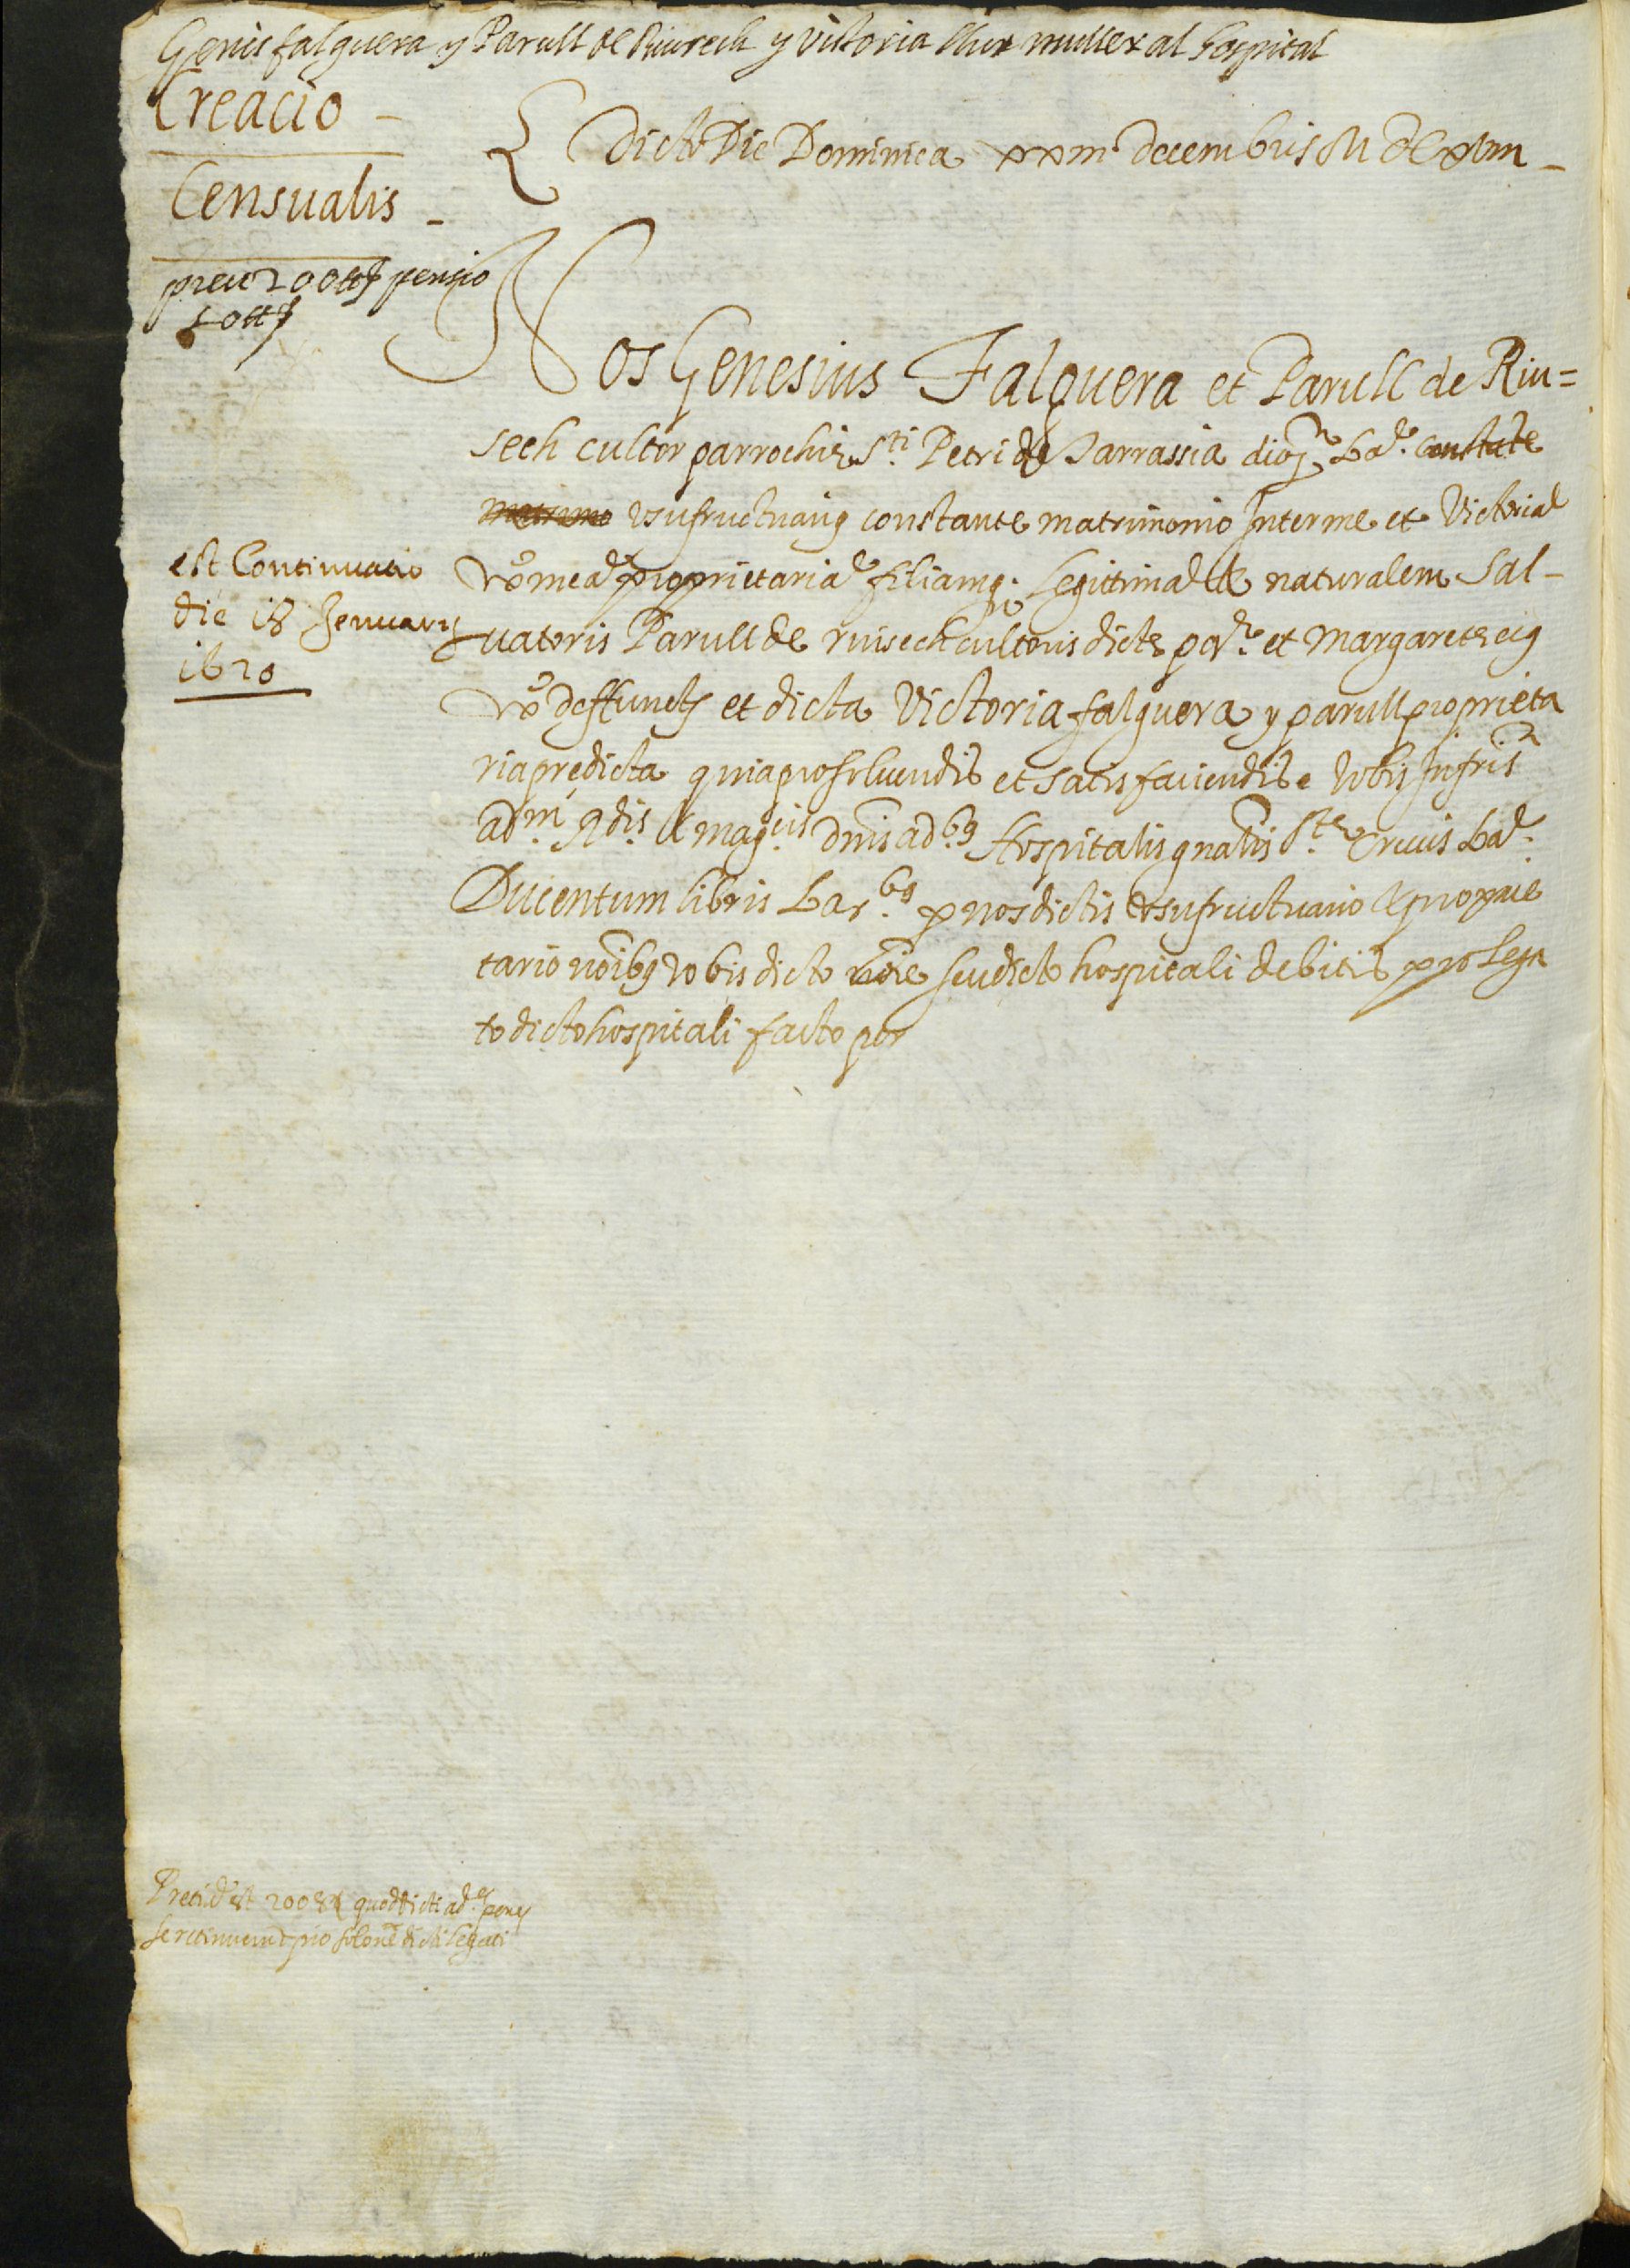 Genis falguera y Parull de Riusech y Victoria Muller al hospital
Creacio
Censualis
preu 200 ₶ pensio
10 ₶
Dicto Die Dominica xxiii decembris M DC xviii
Nos Genesius Falguera et Parull de Riu=
sech cultor parrochiæ Sti. Petri de Sarrassia dioc. Ba. constate
matrimo usufructuariꝯ constante matrimonio Inter me et Victoria
uō mea proprietaria filiamqꝫ legittima et naturalem Sal-
uatoris Parull de riusech cultoris dicte par. et Margarete eiꝯ
uō deffuncts et dicta Victoria falguera y parull proprieta
ria predicta quia pro solvendis et satisfaciendis vobis Infris
adm. Rdis. et mag.cis dnis ad.bꝯ Hospitalis gnalis Ste. Crucis Ba.
Ducentum libris Bar.bꝯ p nos dictis usufructuario et proprie
tario noibꝯ vobis dicto noie seu dicto hospitali debitis pro lega
to dicto hospitali facto per
est Continuatio
die 18 Januarij
1620
Preciu est 200 ₶ quod dicti ad. penes
se retinuerunt pro solone dicti legati